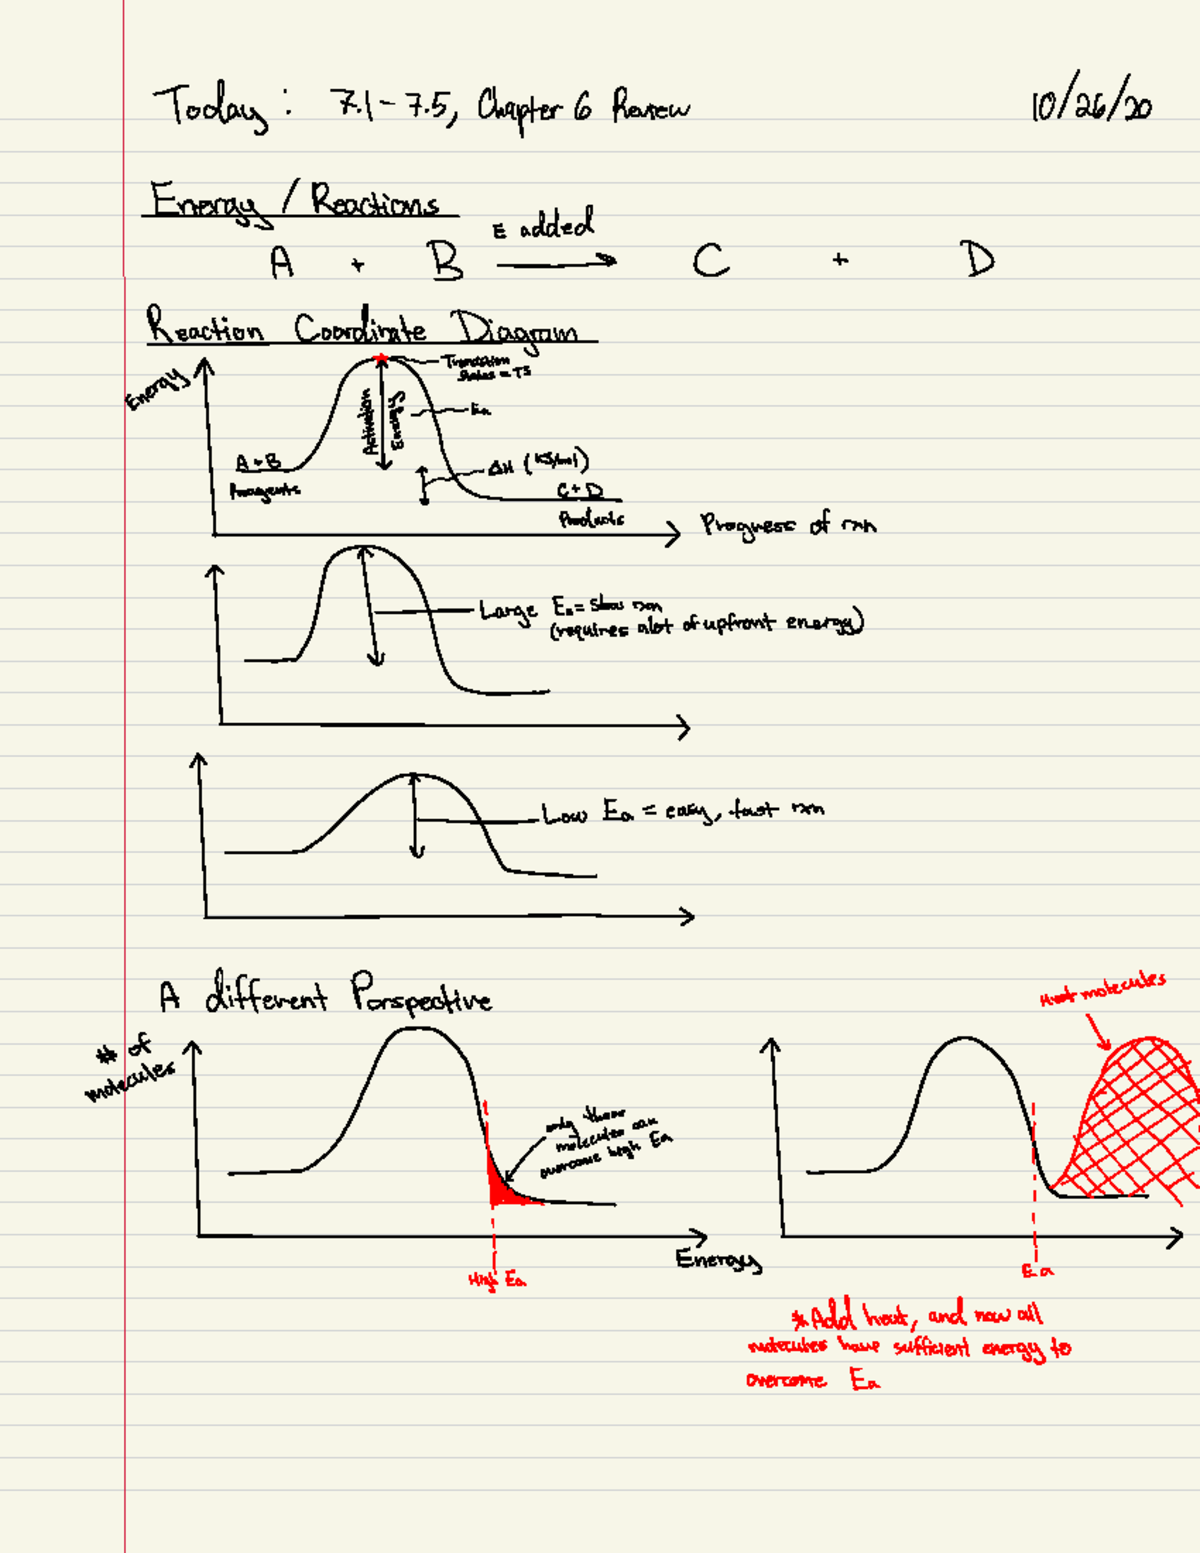 Today: 7.1-7.5, Chapter 6 Review
10/26/20
Energy / Reactions
E added
A + B → C + D
Reaction Coordinate Diagram
Energy
Transition
States = TS
Activation
Energy
Ea
A+B
Reagents
ΔH (kJ/mol)
C+D
Products
Progress of rxn
Large Ea = slow rxn
(requires alot of upfront energy)
Low Ea = easy, fast rxn
A different Perspective
# of
molecules
only these
molecules can
overcome high Ea
High Ea
Energy
Hot molecules
Ea
*Add heat, and now all
molecules have sufficient energy to
overcome Ea